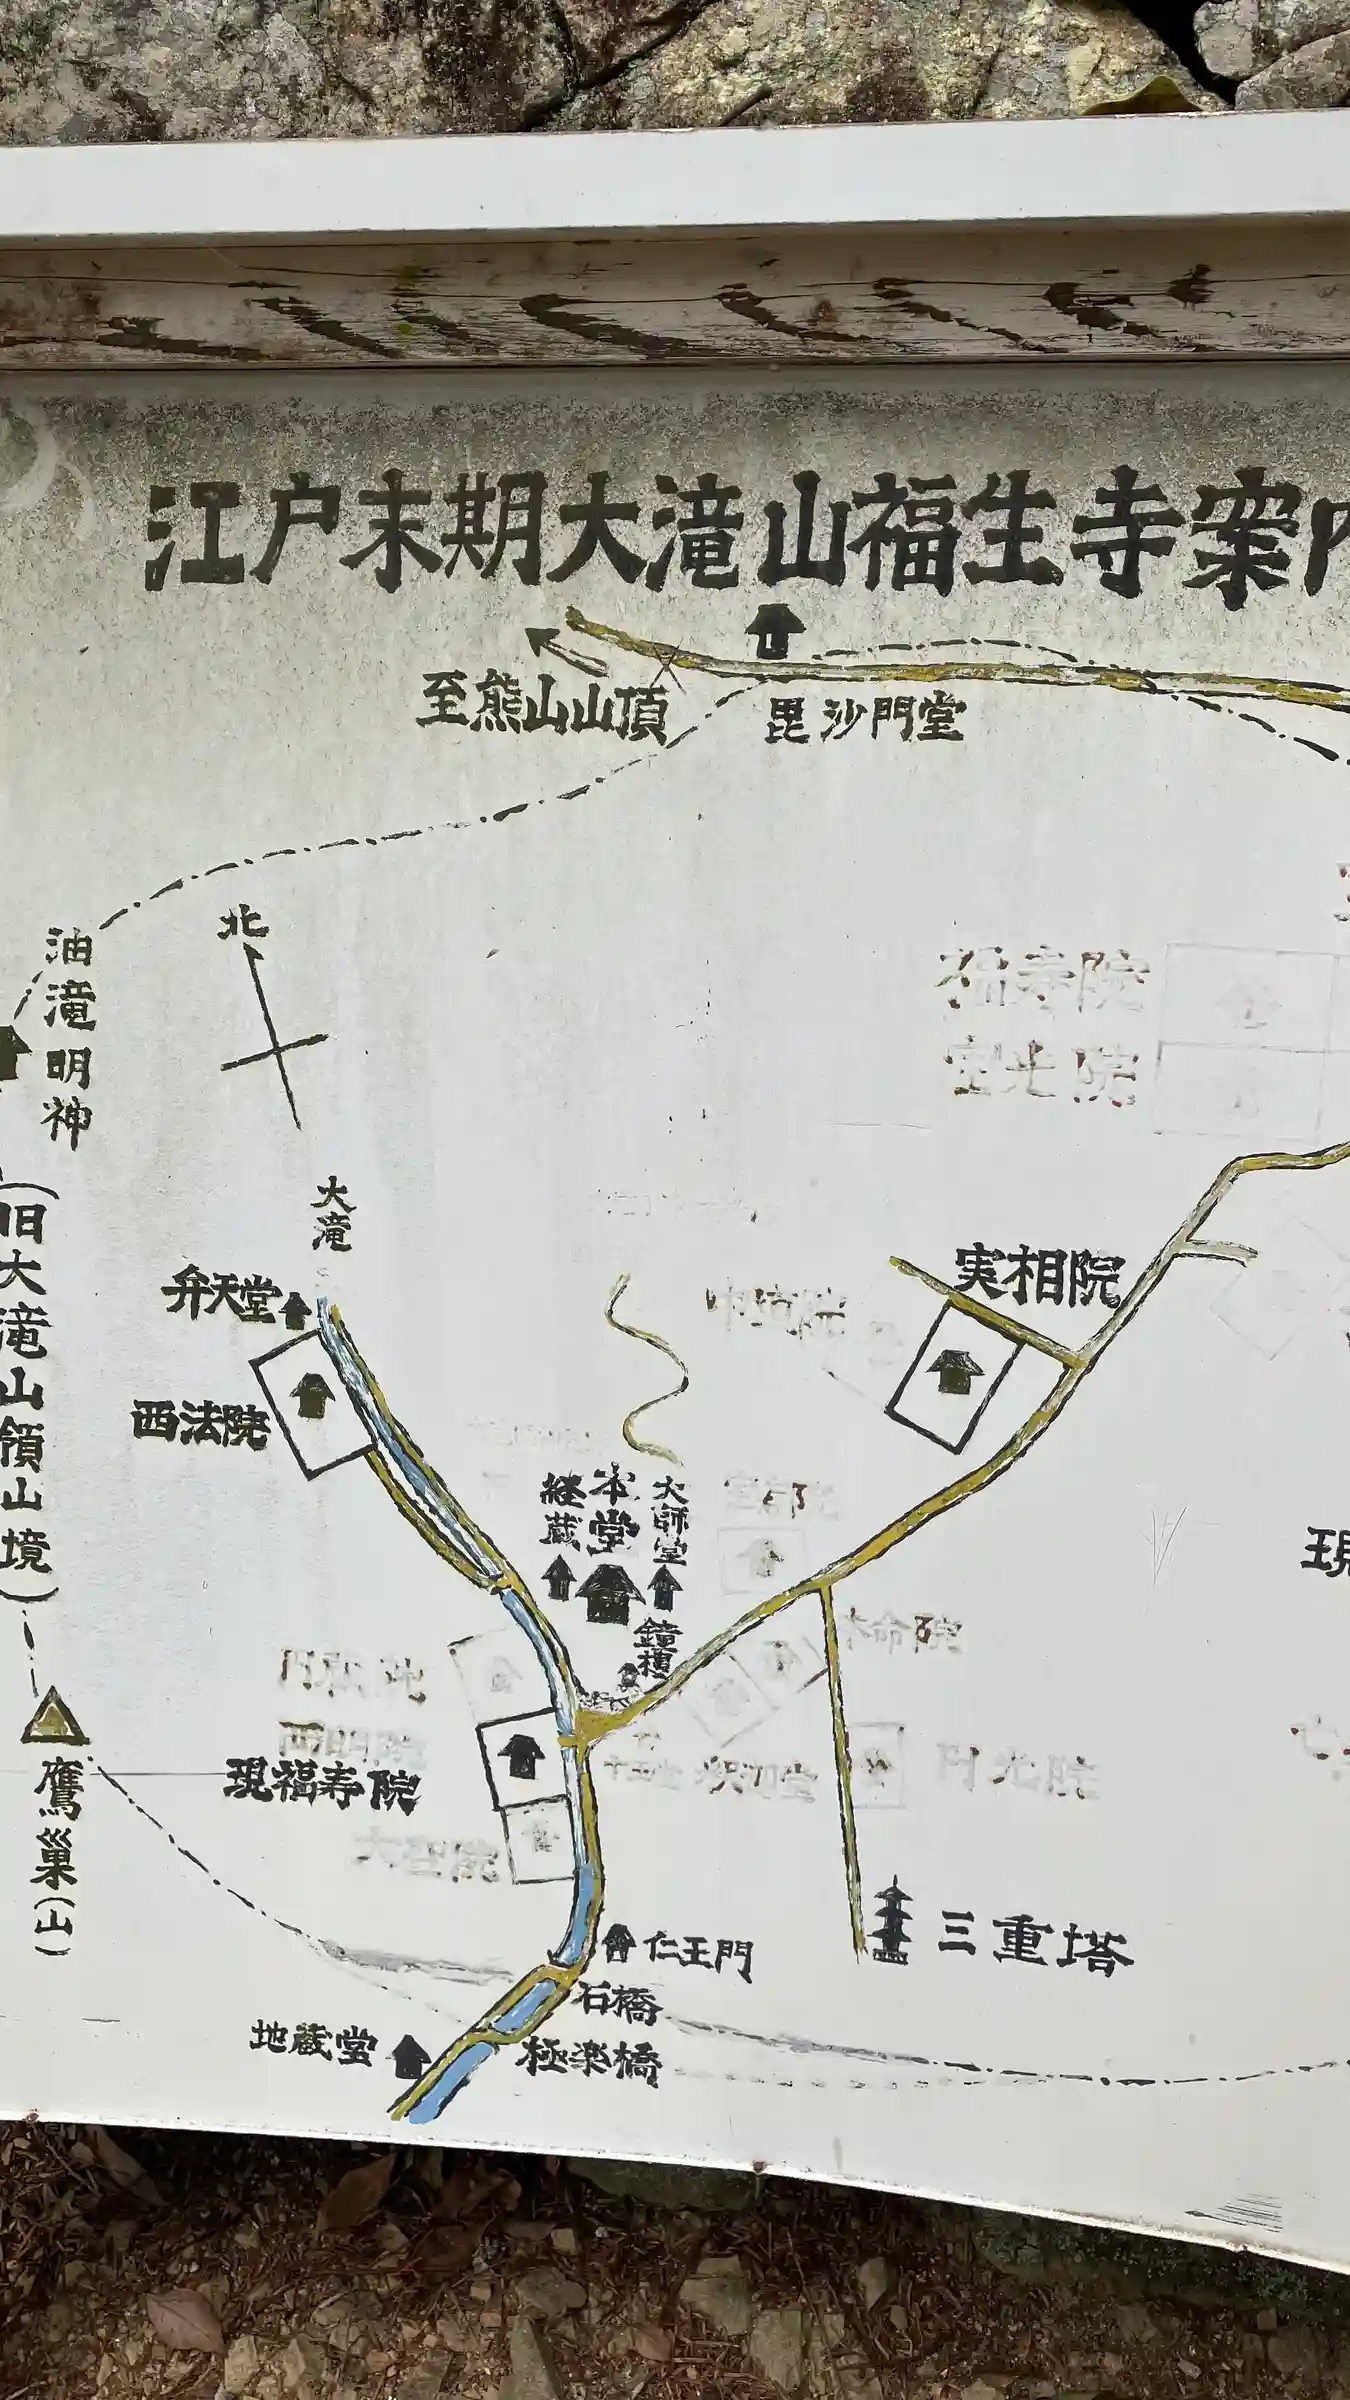 江戸末期大滝山福生寺案内
至熊山山頂
毘沙門堂
北
油滝明神
(旧大滝山領山境)
福寿院
宝光院
大滝
弁天堂
実相院
西法院
経蔵
本堂
大師堂
鐘楼
現
本命院
現福寿院
釈迦堂
円光院
鷹巣(山)
三重塔
仁王門
石橋
地蔵堂
極楽橋